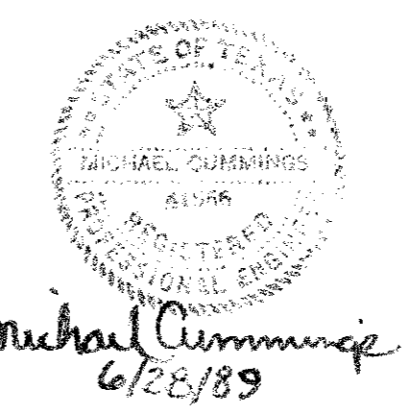 STATE OF TEXAS
MICHAEL CUMMINGS
REGISTERED
PROFESSIONAL ENGINEER
Michael Cummings
6/28/89